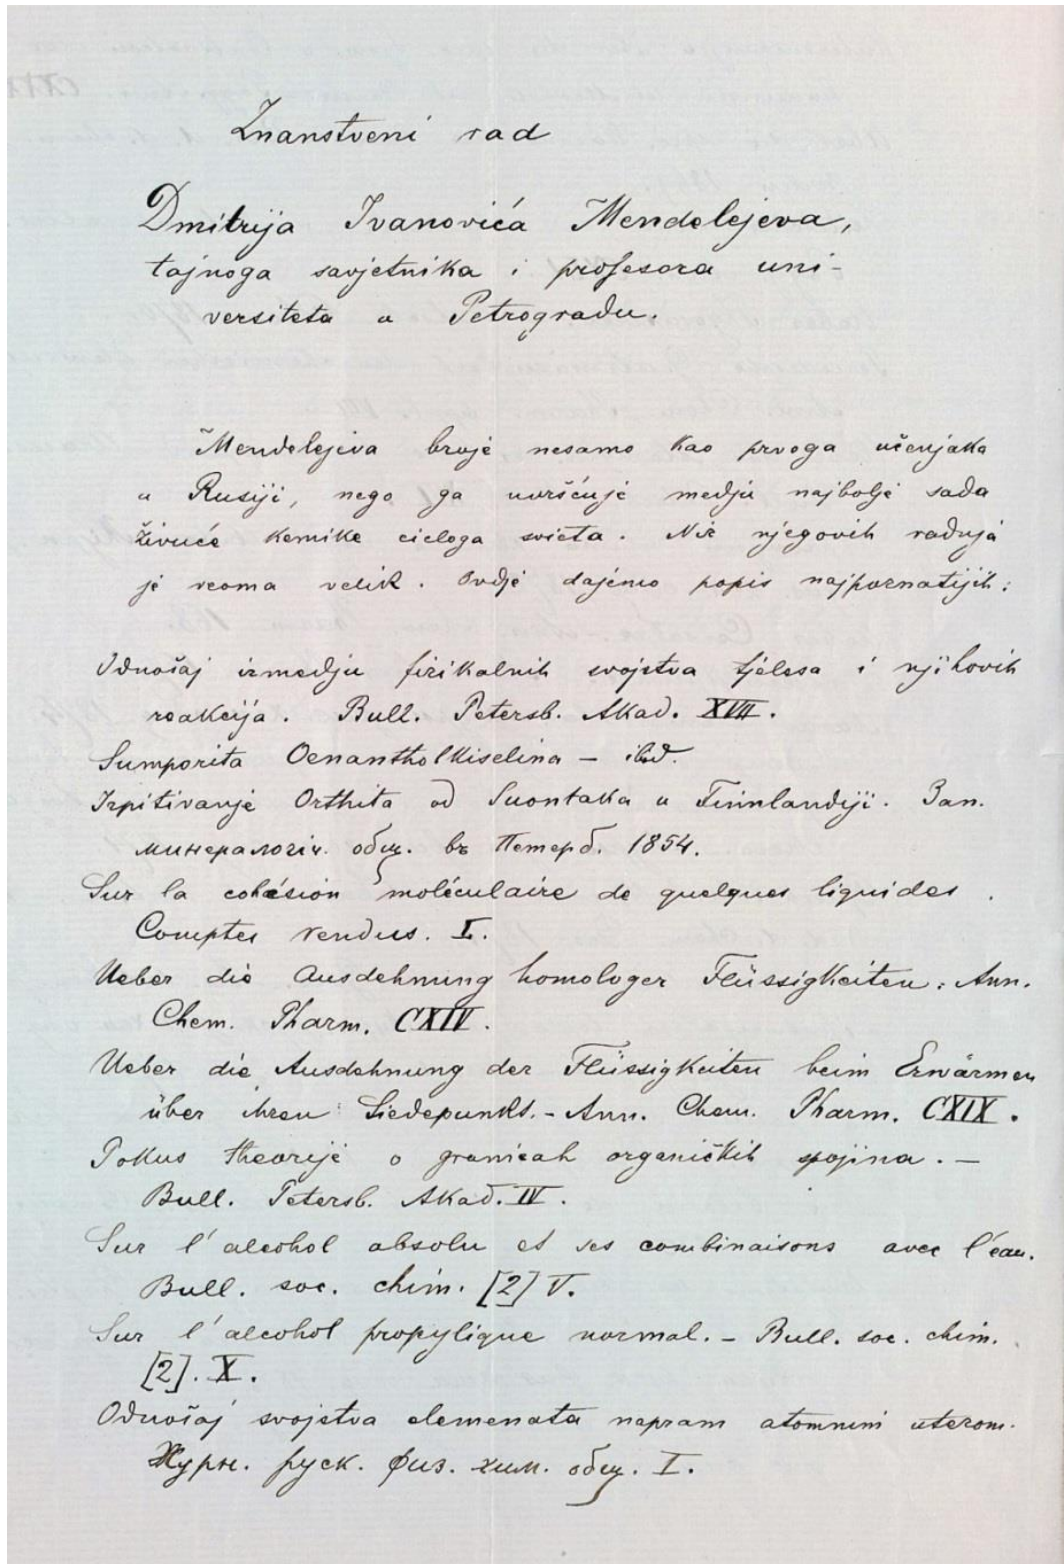 Znanstveni rad
Dmitrija Ivanovića Mendelejeva,
tajnoga savjetnika i profesora uni-
versiteta u Petrogradu.
Mendelejeva broje nesamo kao prvoga učenjaka
u Rusiji, nego ga uvršćuje medju najbolje sada
živuće kemike cieloga svieta. Niz njegovih radnja
je veoma velik. Ovdje dajemo popis najpoznatijih:
Odnošaj izmedju fizikalnih svojstva tjelesa i njihovih
reakcija. Bull. Petersb. Akad. XVII.
Sumporita Oenantholkiselina – ibid.
Izpitivanje Orthita od Suontaka u Finnlandiji. Зап.
минералогіч. общ. въ Петерб. 1854.
Sur la cohésion moléculaire de quelques liquides.
Comptes rendus. L.
Ueber die Ausdehnung homologer Flüssigkeiten. Ann.
Chem. Pharm. CXIV.
Ueber die Ausdehnung der Flüssigkeiten beim Erwärmen
über ihren Siedepunkt. – Ann. Chem. Pharm. CXIX.
Pokus theorije o granicah organičkih spojina. –
Bull. Petersb. Akad. IV.
Sur l'alcohol absolu et ses combinaisons avec l'éau.
Bull. soc. chim. [2] V.
Sur l'alcohol propylique normal. – Bull. soc. chim.
[2]. X.
Odnošaj svojstva elemenata napram atomnim uterom.
Журн. руск. физ. хим. общ. I.